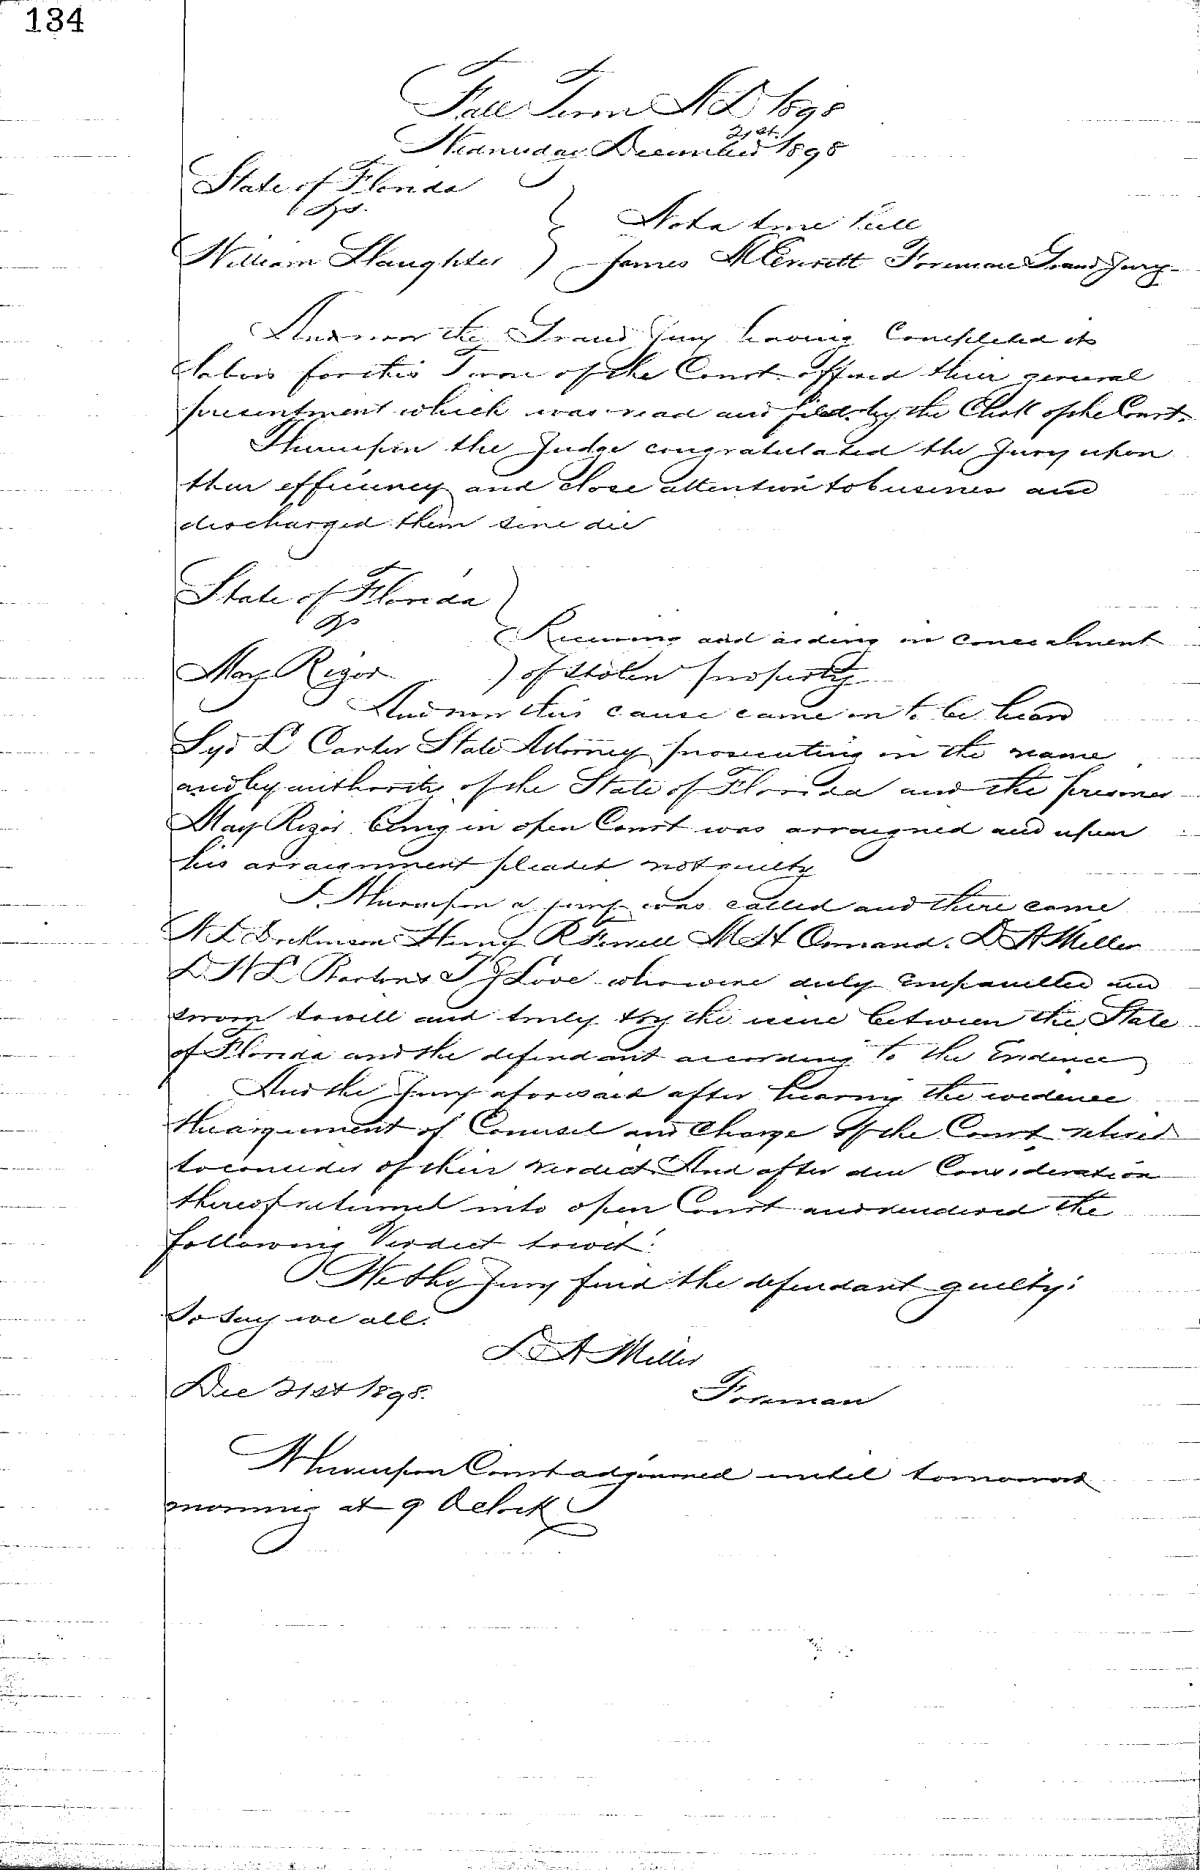 134
Fall Term A D 1898
Wednesday December 21st 1898
State of Florida
vs.
Not a true bill
William Slaughter
James M Foreman Grand Jury
And now the Grand Jury having Completed its
labors for this Term of the Court offered their general
presentment which was read and filed by the Clerk of the Court.
Thereupon the Judge congratulated the Jury upon
their efficiency and close attention to business and
discharged them sine die
State of Florida
vs
Receiving and aiding in concealment
May Rizor
of stolen property
And now this cause came on to be heard
Syd L Carter State Attorney prosecuting in the name
and by authority of the State of Florida and the prisoner
May Rizor being in open Court was arraigned and upon
his arraignment pleaded not guilty
Thereupon a jury was called and there came
A L Henry R M H D A Miller
T J Love who were duly empanelled and
sworn to well and truly try the issue between the State
of Florida and the defendant according to the Evidence
And the Jury aforesaid after hearing the evidence
the argument of Counsel and Charge of the Court retired
to consider of their verdict And after due Consideration
thereof returned into open Court and rendered the
following Verdict towit:
We the Jury find the defendant guilty:
So say we all.
D A Miller
Dec 21st 1898.
Foreman
Thereupon Court adjourned until tomorrow
morning at 9 Oclock